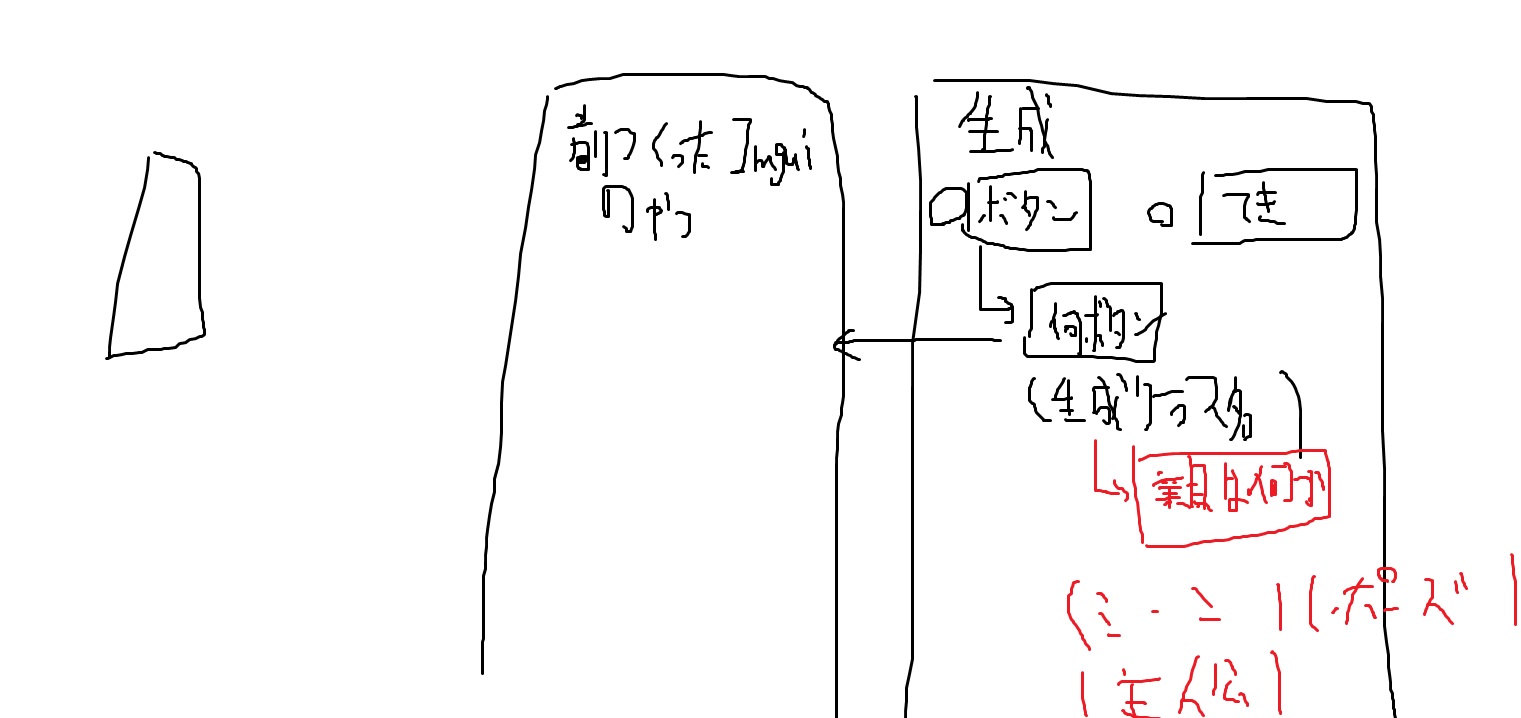 前つくったImgui
のやつ
生成
ボタン
てき
何ボタン
(生成クラスタ名)
親は何か
(シーン)(ポーズ)
(主人公)